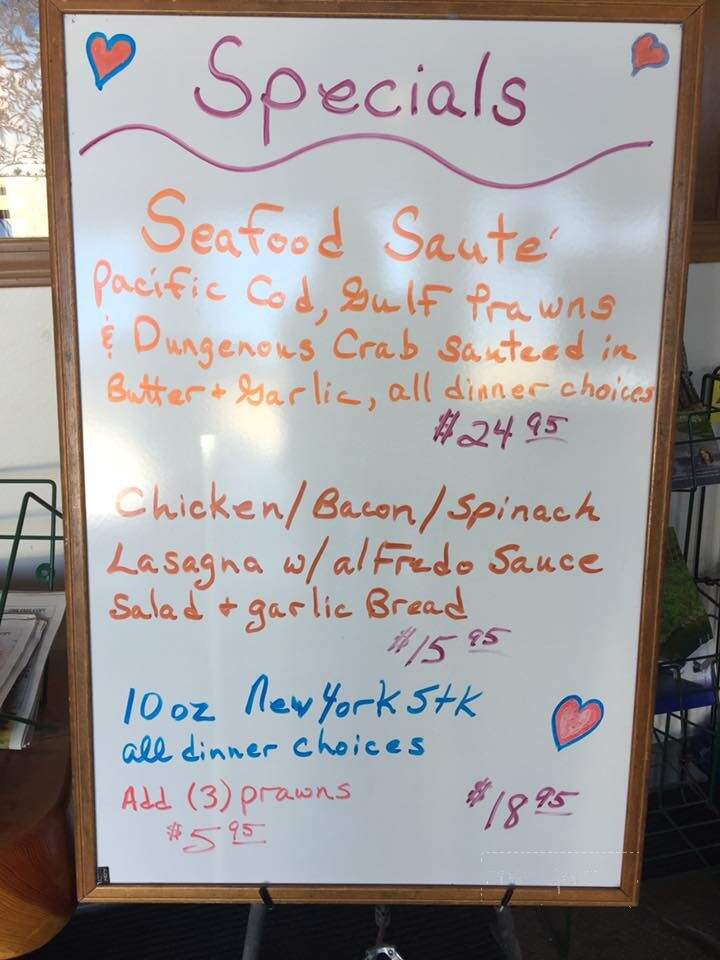 Specials
Seafood Sauté
Pacific Cod, Gulf Prawns
& Dungenous Crab sauteed in
Butter + Garlic, all dinner choices
$24 95
Chicken/Bacon/Spinach
Lasagna w/ alfredo Sauce
Salad + garlic Bread
$15 95
10 oz New York Stk
all dinner choices
Add (3) prawns
$5 95
$18 95